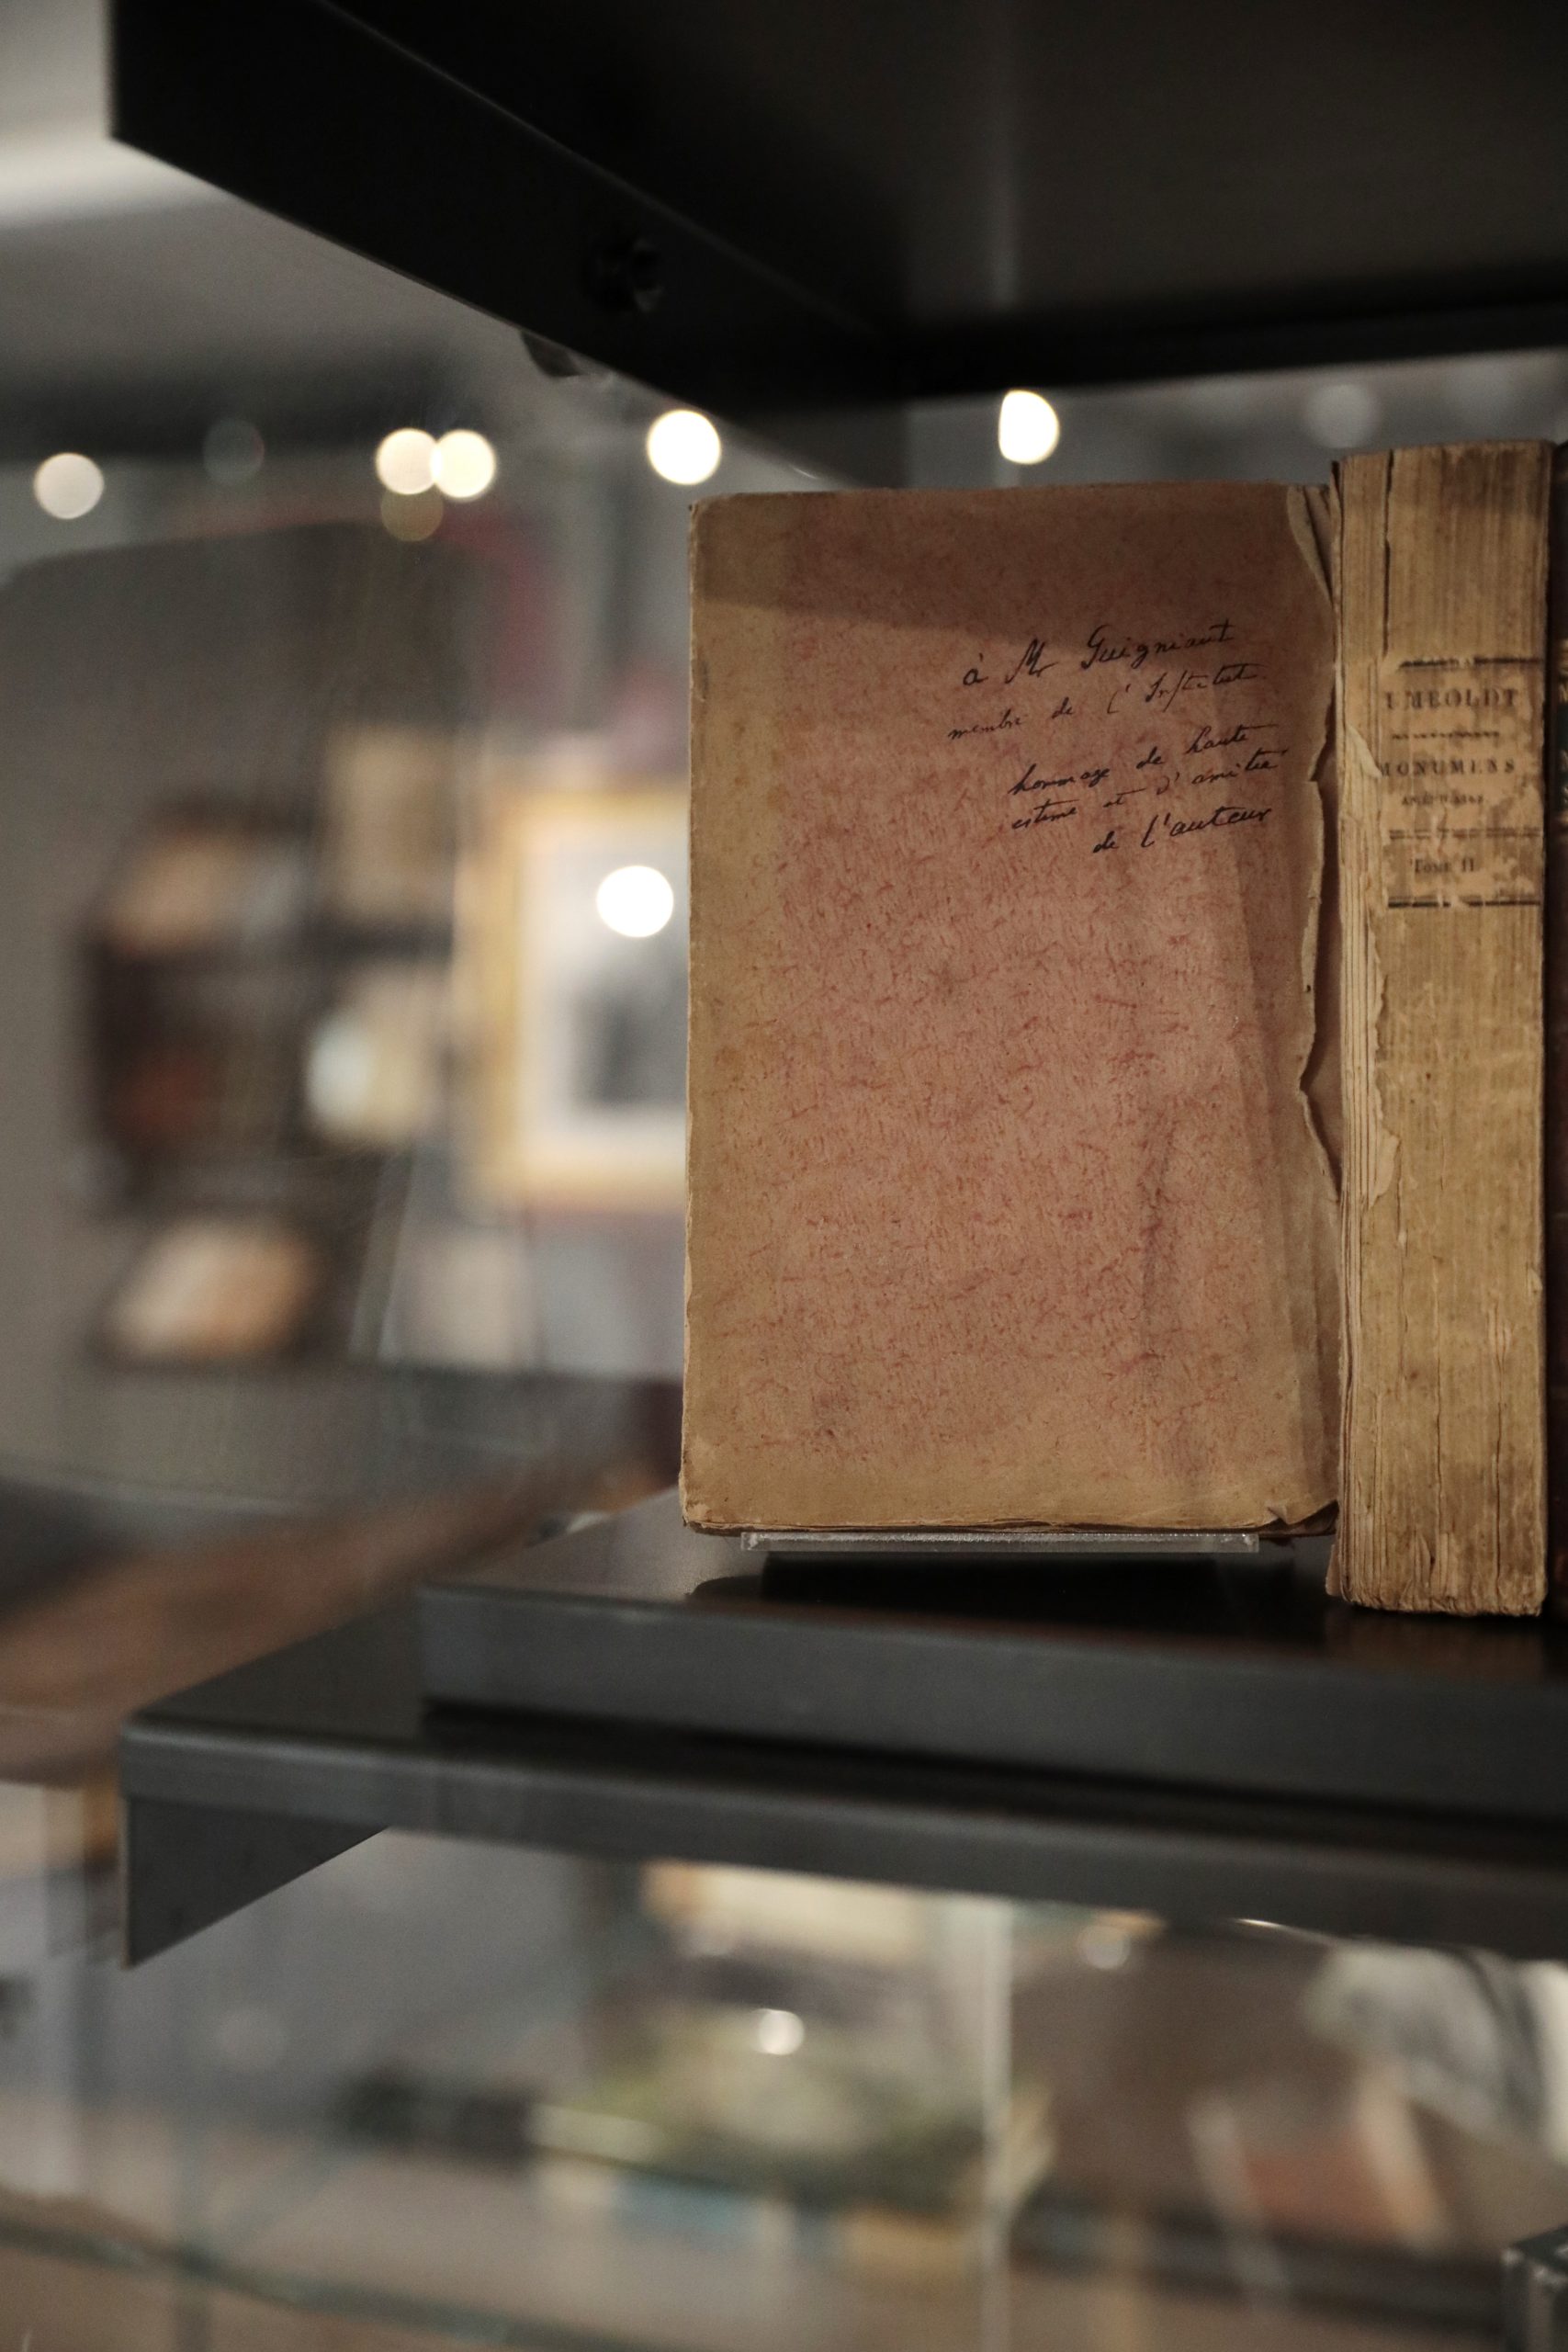 à Mr Guigniaut
membre de l'Institut
hommage de haute
estime et d'amitié
de l'auteur
UMBOLDT
MONUMENS
Tome II